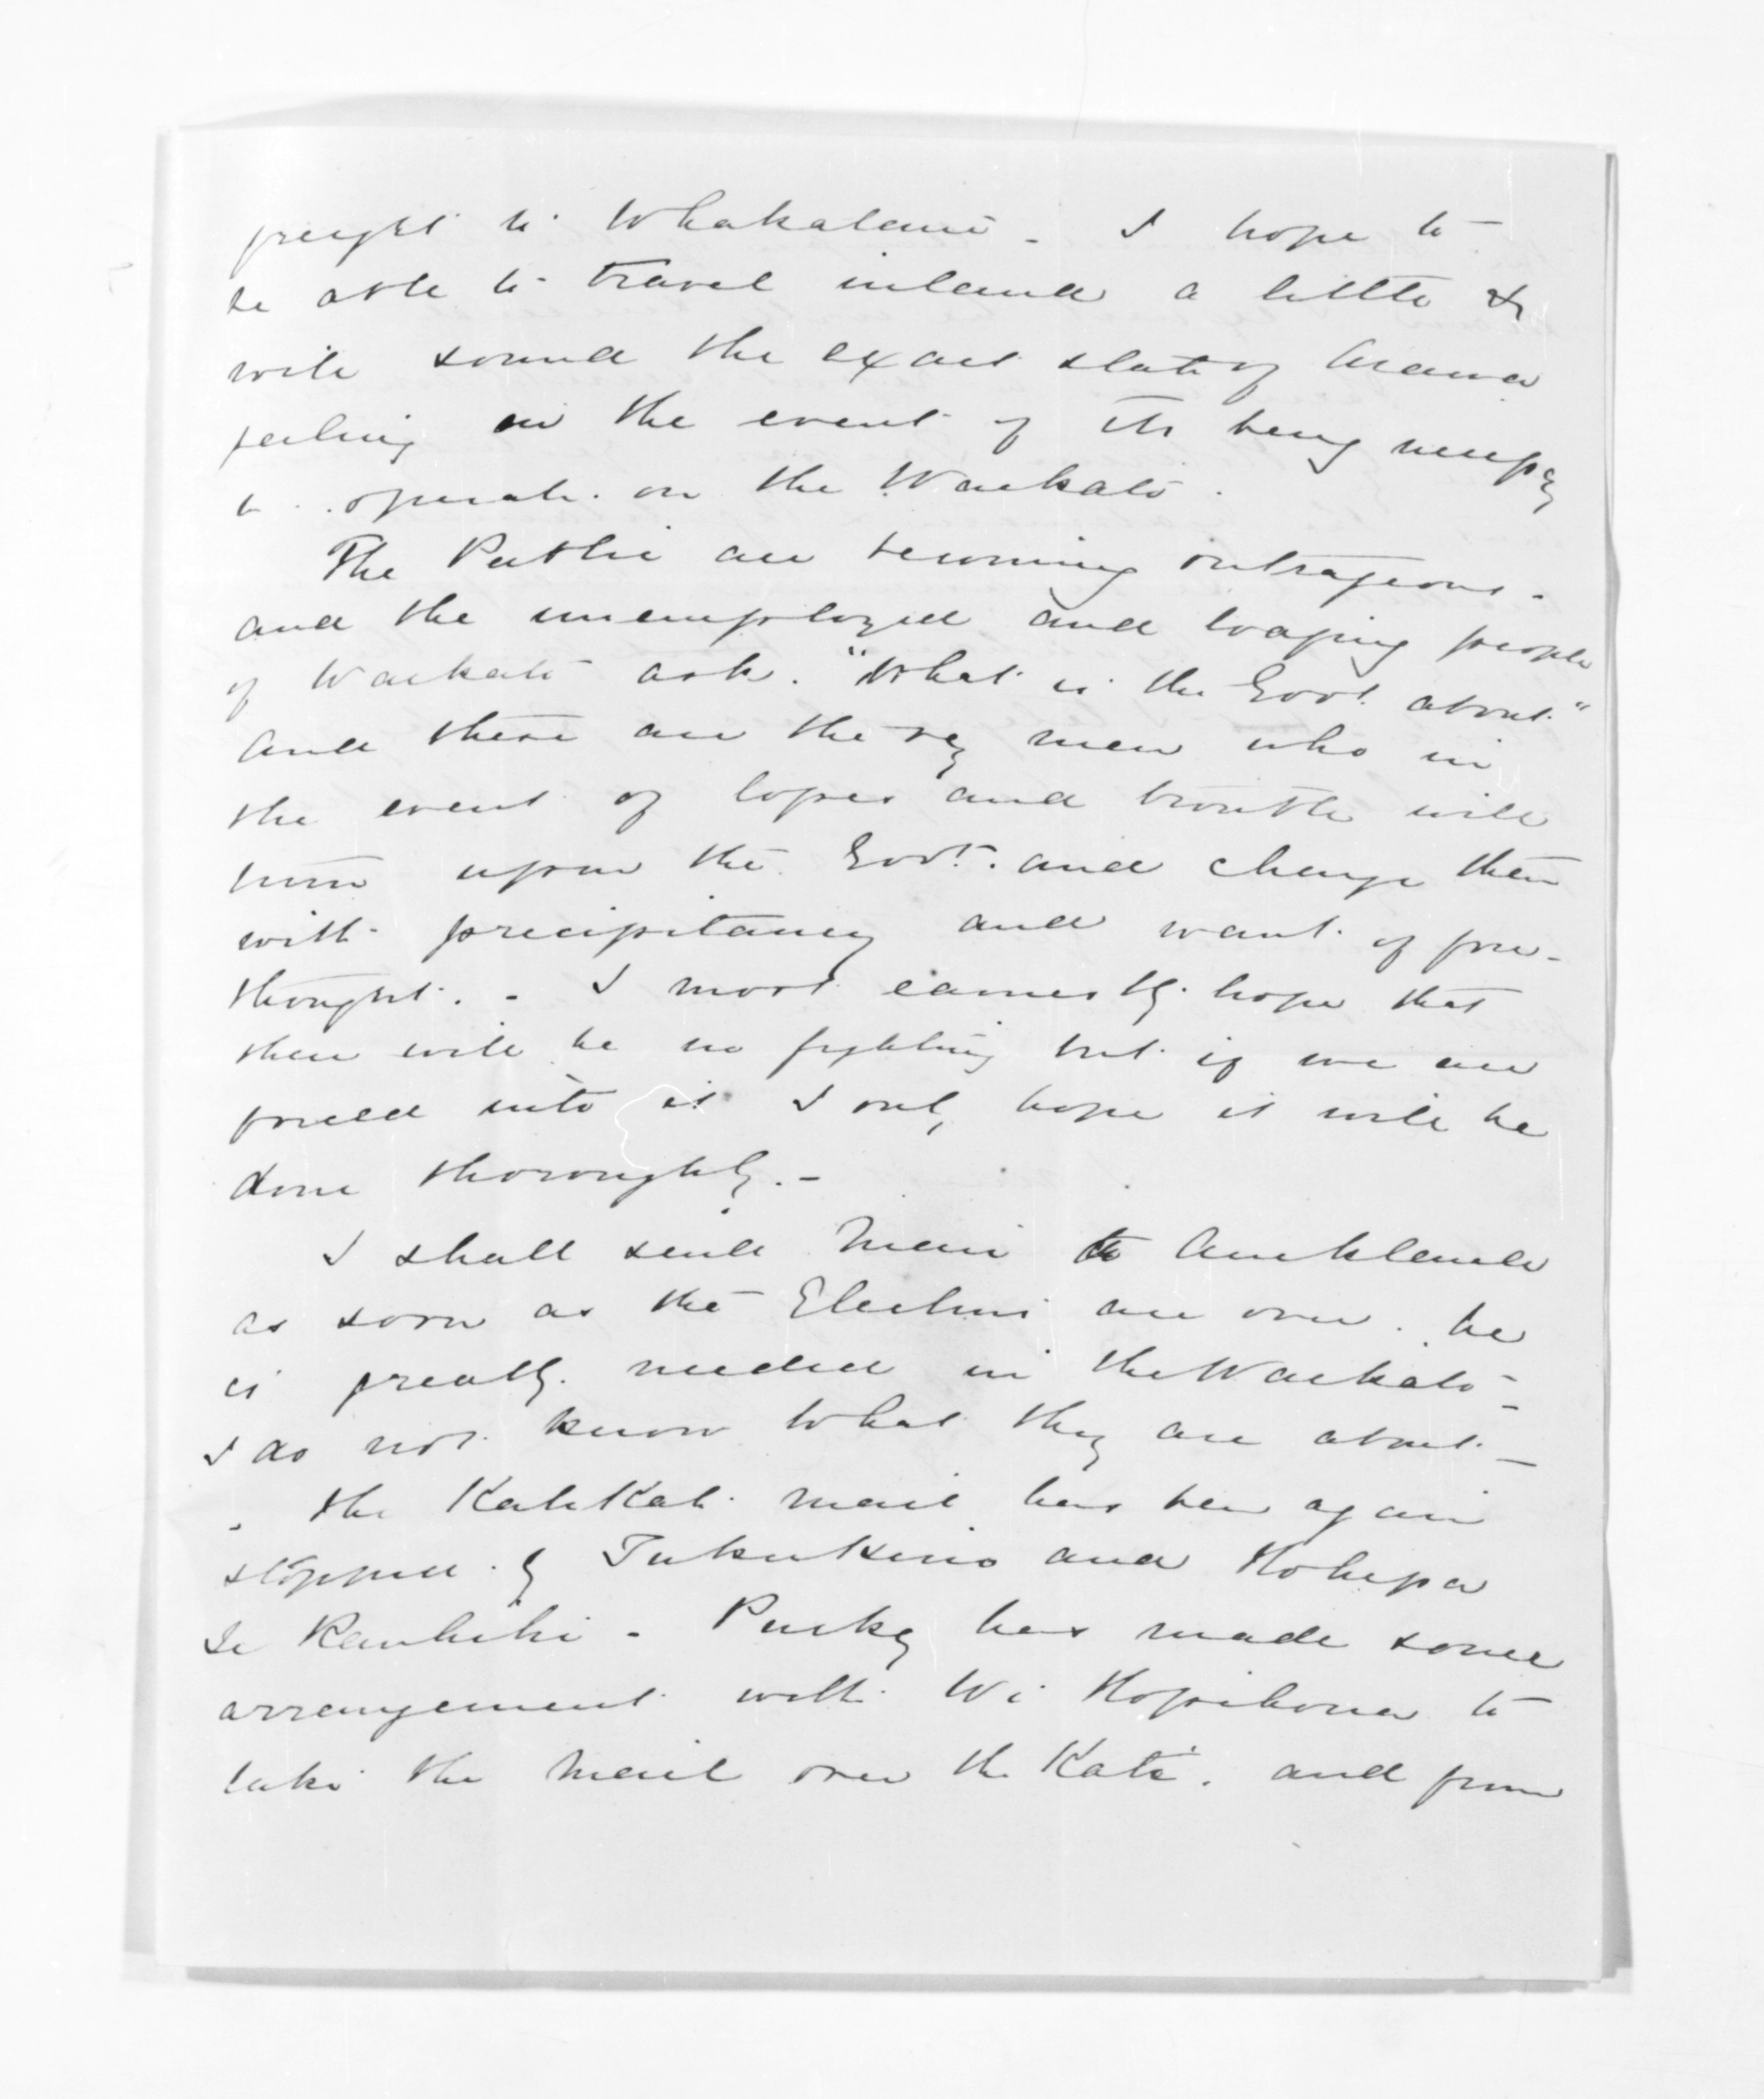 freight to Whakatane - I hope to
be able to travel inland a little &
will sound the exact state of Arawa
feeling in the event of its being necessary
to operate on the Waikato.
The Public are becoming outrageous -
and the unemployed and loafing people
of Waikato ask. "What is the Govt. about"
and these are the very men who in
the event of losses and trouble will
turn upon the Govt. and charge them
with precipitancy and want of fore-
thought. - I most earnestly hope that
there will be no fighting but if we are
forced into it I only hope it will be
done thoroughly. -
I shall send Mair to Auckland
as soon as the Elections are over. he
is greatly needed in the Waikato -
I do not know what they are about -
The KatiKati mail has been again
stopped by Tukukino and Hohepa
te Rauhihi - Puckey has made some
arrangement with Wi Hopihona to
take the Mail over the Kati. and from